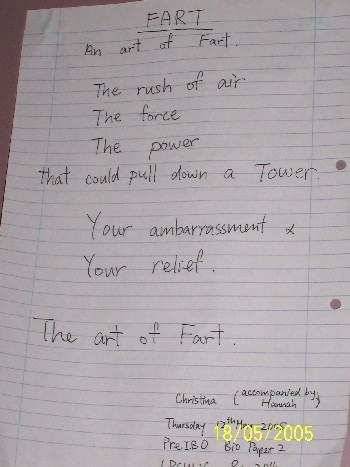 FART
An art of Fart.
The rush of air
The force
The power
that could pull down a Tower.
Your ambarrassment &
Your relief.
The art of Fart.
Christina (accompanied by Hannah)
Thursday 12th May 2005
18/05/2005
Pre IBO Bio Paper 2